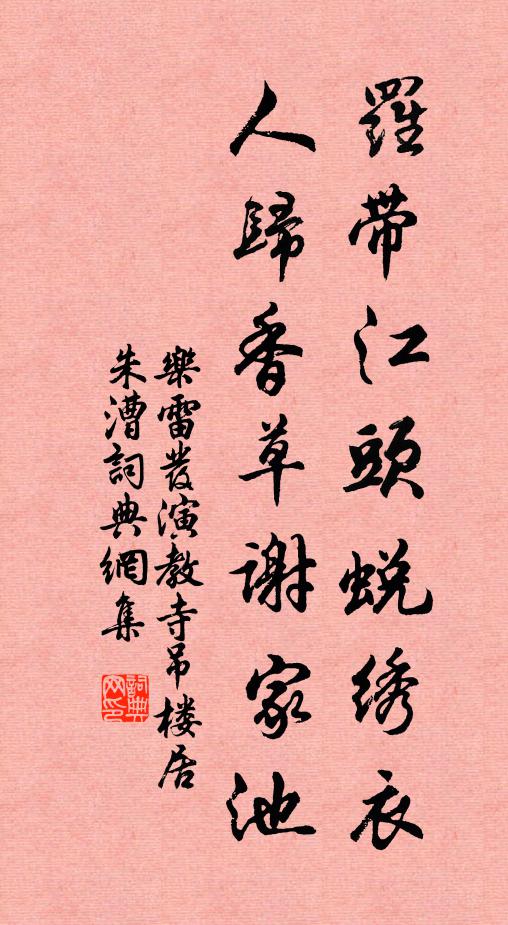 羅帶江頭蛻绣衣
人歸香草谢家池
樂雷發演教寺吊楼居
朱漕詞典網集
詞典網印